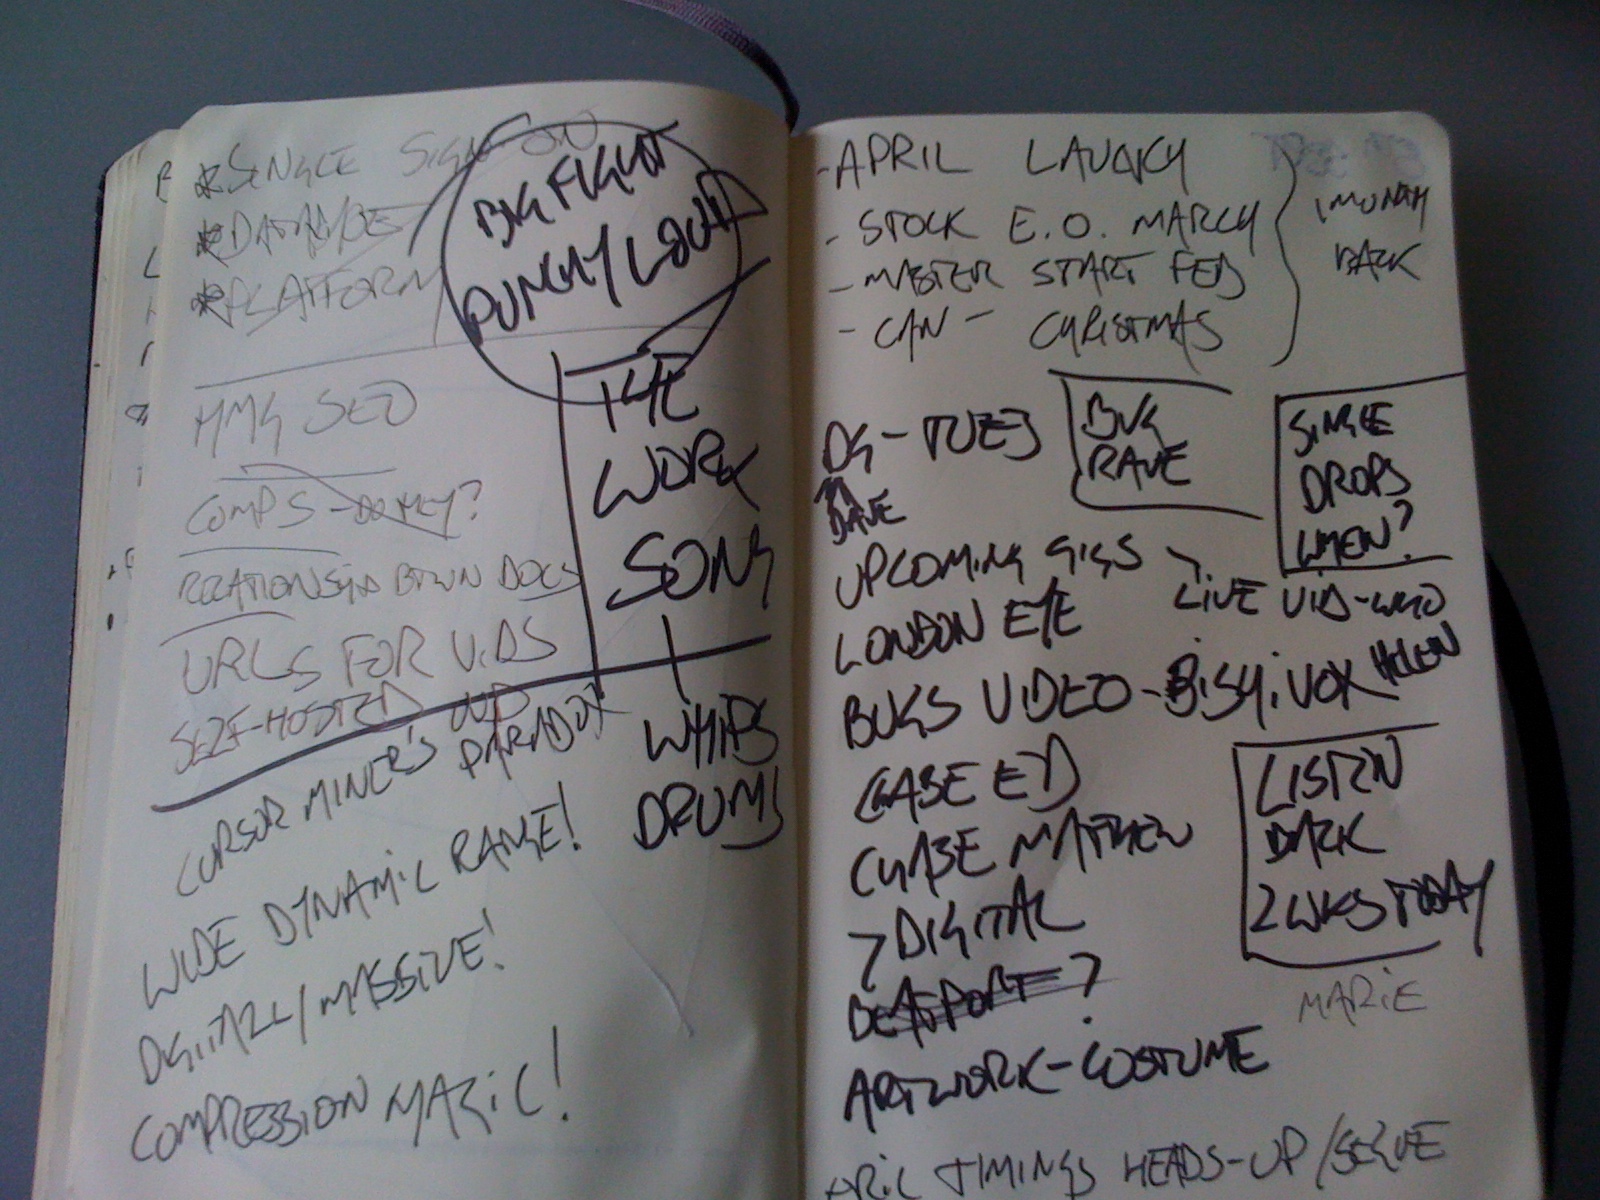 *SINGLE SIGN-ON
*DATABASE
*PLATFORM
BIG FIGHT
PUNCHY LOUD
MMG SEO
COMPS -
RELATIONSHIP BTWN DOCS
URLS FOR ViDS
SELF-HOSTED VID
THE
WORK
SONG
WHIPS
DRUMS
CURSOR MINER'S PARADOX
WIDE DYNAMiC RANGE!
DIGITAL/MASSIVE!
COMPRESSION MAGiC!
-APRIL LAUNCH
- STOCK E.O. MARCH
- MASTER START FEB
- CAN - CHRISTMAS
1 MONTH
BACK
DG - TUES
DAVE
BUG
RAVE
SINGLE
DROPS
WHEN?
UPCOMING GIGS
LiVE ViD-WHO
LONDON EYE
BUGS VIDEO - BISHi. VOX HELEN
CHASE ED
CHASE MATTHEW
7DIGITAL
BEATPORT?
ARTWORK-COSTUME
LISTEN
BACK
2 WKS TODAY
MARiE
TIMINGS HEADS-UP/SERVE